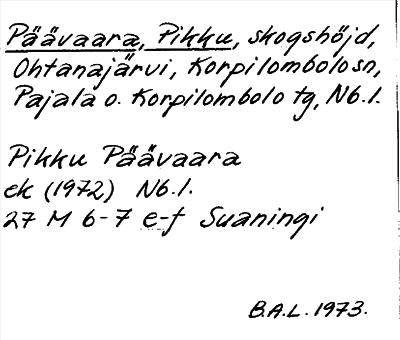 Päävaara, Pikku, skogshöjd,
Ohtanajärvi, Korpilombolo sn,
Pajala o. Korpilombolo tg, Nb.l.
Pikku Päävaara
ek (1972) Nb.l.
27 M 6-7 e-f Suaningi
B.A.L. 1973.